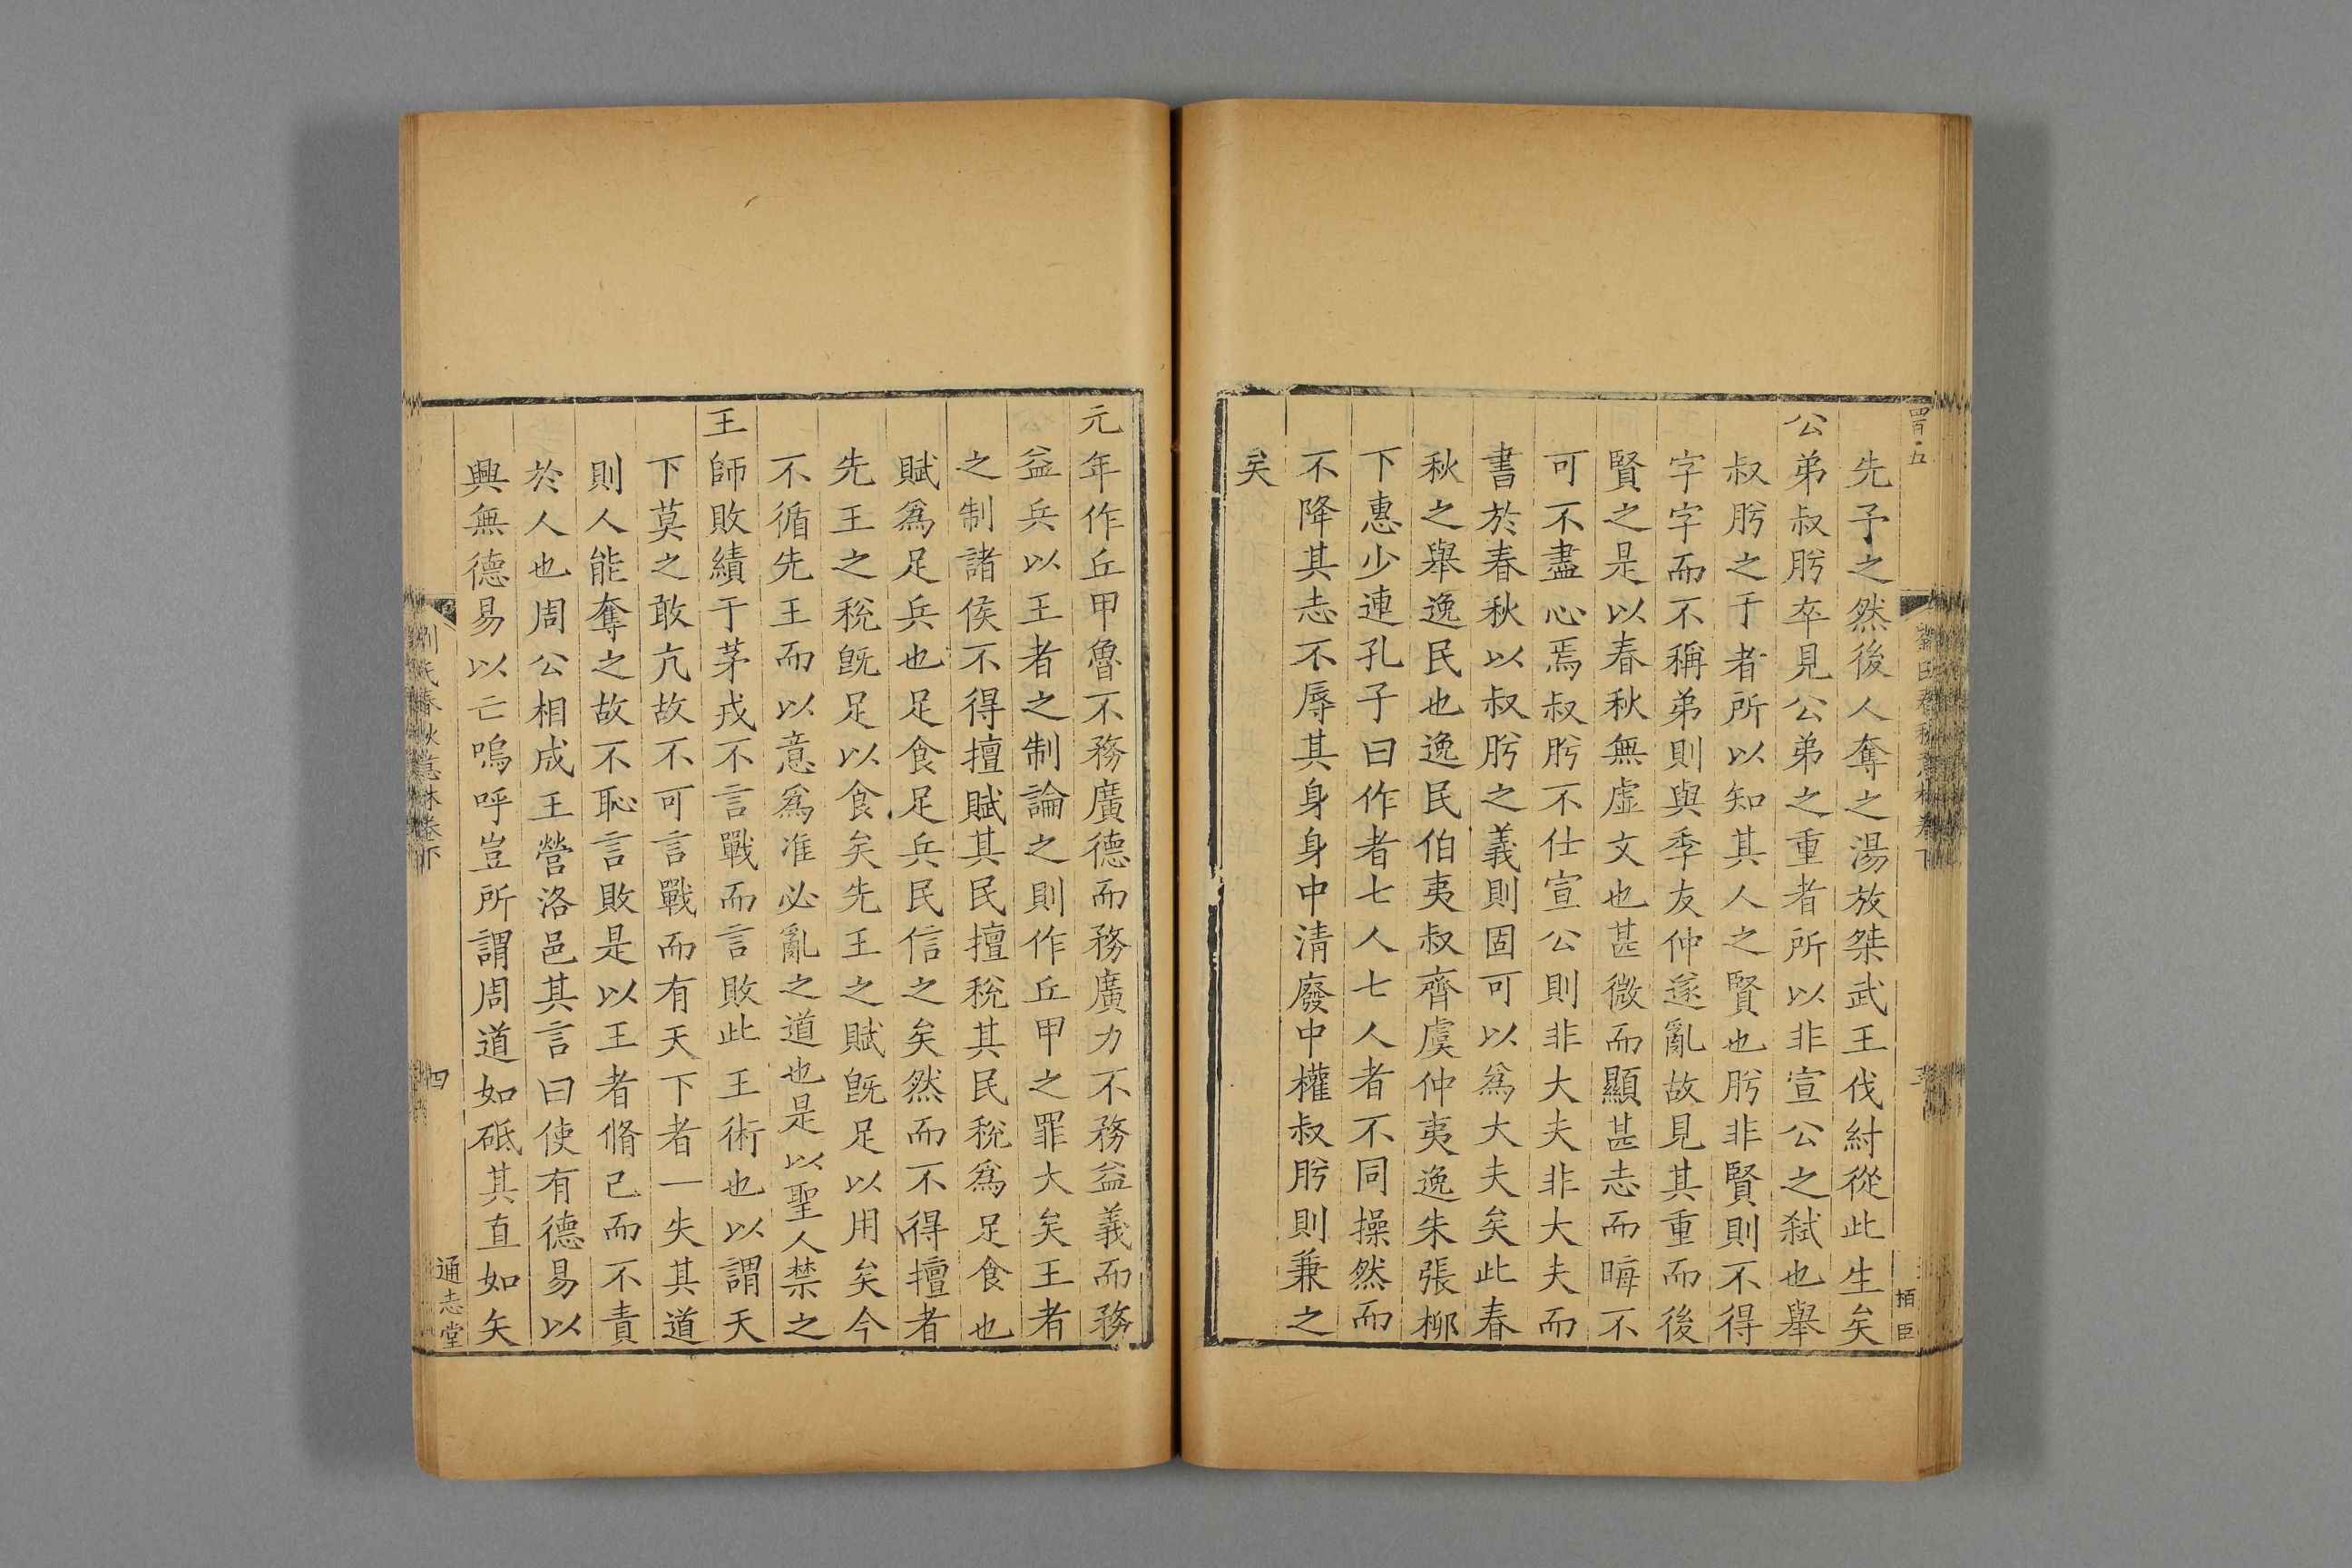 先予之然後人奪之湯放桀武王伐紂從此生矣
公弟叔肹卒見公弟之重者所以非宣公之弒也舉
叔肹之于者所以知其人之賢也肹非賢則不得
字字而不稱弟則與季友仲遂亂故見其重而後
賢之是以春秋無虛文也甚微而顯甚志而晦不
可不盡心焉叔肹不仕宣公則非大夫非大夫而
書於春秋以叔肹之義則固可以爲大夫矣此春
秋之舉逸民也逸民伯夷叔齊虞仲夷逸朱張柳
下惠少連孔子曰作者七人七人者不同操然而
不降其志不辱其身身中清廢中權叔肹則兼之
矣
元年作丘甲魯不務廣德而務廣力不務益義而務
益兵以王者之制論之則作丘甲之罪大矣王者
之制諸侯不得擅賦其民擅稅其民稅爲足食也
賦爲足兵也足食足兵民信之矣然而不得擅者
先王之稅旣足以食矣先王之賦旣足以用矣今
不循先王而以意爲准必亂之道也是以聖人禁之
王師敗績于茅戎不言戰而言敗此王術也以謂天
下莫之敢亢故不可言戰而有天下者一失其道
則人能奪之故不恥言敗是以王者脩己而不責
於人也周公相成王營洛邑其言曰使有德易以
興無德易以亡嗚呼豈所謂周道如砥其直如矢
劉氏春秋意林卷下
四
通志堂